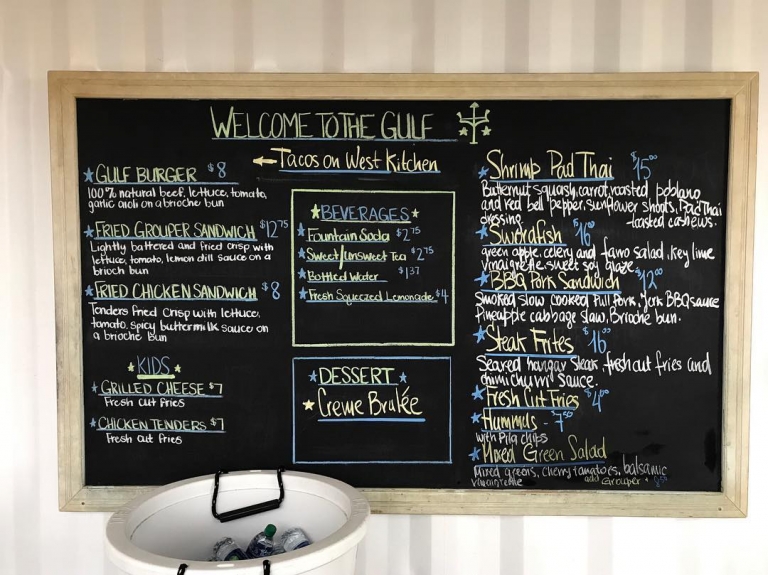 WELCOME TO THE GULF
← Tacos on West Kitchen
GULF BURGER $8
100% natural beef, lettuce, tomato,
garlic aioli on a brioche bun
FRIED GROUPER SANDWICH $12.75
Lightly battered and fried crisp with
lettuce, tomato, lemon dill sauce on a
brioch bun
FRIED CHICKEN SANDWICH $8
Tenders fried crisp with lettuce,
tomato, spicy buttermilk sauce on
a brioche bun
KIDS
GRILLED CHEESE $7
Fresh cut fries
CHICKEN TENDERS $7
Fresh cut fries
BEVERAGES
Fountain Soda $2.75
Sweet/Unsweet Tea $2.75
Bottled Water $1.37
Fresh Squeezed Lemonade $4
DESSERT
Creme Brulée
Shrimp Pad Thai $15.00
Butternut squash, carrot, roasted poblano
and red bell pepper, sunflower shoots, Pad Thai
dressing toasted cashews.
Swordfish $16.00
green apple, celery and farro salad, key lime
vinaigrette, sweet soy glaze
BBQ Pork Sandwich $12.00
Smoked slow cooked Pull Pork, Jerk BBQ sauce
Pineapple cabbage slaw, Brioche bun.
Steak Frites $16.00
Seared hangar steak, fresh cut fries and
chimichurri sauce.
Fresh Cut Fries $4.00
Hummus - $7.50
with Pita chips
Mixed Green Salad
Mixed greens, cherry tomatoes, balsamic
vinaigrette add Grouper +